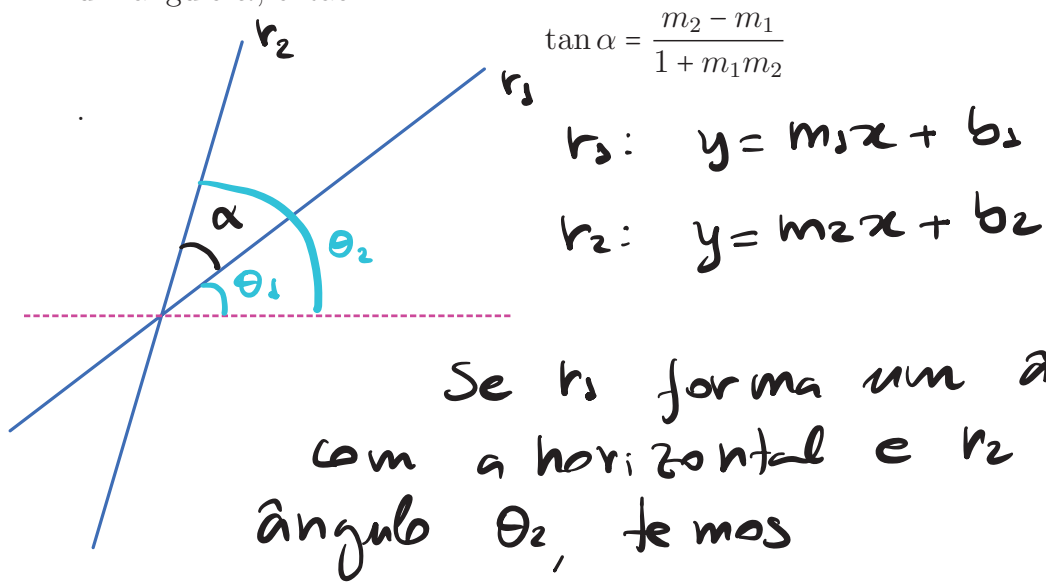 r₂
tan α = (m₂ − m₁) / (1 + m₁m₂)
r₁
r₁: y = m₁x + b₁
α
θ₂
r₂: y = m₂x + b₂
θ₁
Se r₁ forma um
com a horizontal e r₂
ângulo θ₂, temos